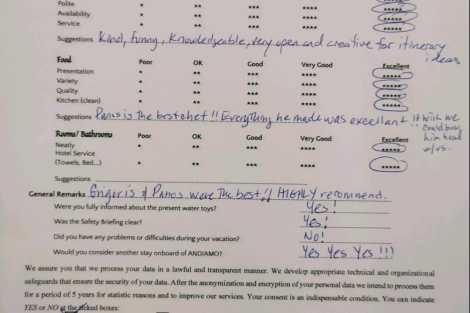 Polite * ** *** **** *****
Availability * ** *** **** *****
Service * ** *** **** *****
Suggestions Kind, funny, knowledgeable, very open and creative for itinerary ideas
Food Poor OK Good Very Good Excellent
Presentation * ** *** **** *****
Variety * ** *** **** *****
Quality * ** *** **** *****
Kitchen (clean) * ** *** **** *****
Suggestions Panos is the best chef!! Everything he made was excellent!! Wish we could bring him home
Rooms / Bathrooms Poor OK Good Very Good Excellent
Neatly * ** *** **** *****
Hotel Service
(Towels, Bed...) * ** *** **** *****
Suggestions
General Remarks & Panos were the best!! HIGHLY recommend.
Were you fully informed about the present water toys? Yes!
Was the Safety Briefing clear? Yes!
Did you have any problems or difficulties during your vacation? No!
Would you consider another stay onboard of ANDIAMO? Yes Yes Yes!!!
We assure you that we process your data in a lawful and transparent manner. We develop appropriate technical and organizational
safeguards that ensure the security of your data. After the anonymization and encryption of your personal data we intend to process them
for a period of 5 years for statistic reasons and to improve our services. Your consent is an indispensable condition. You can indicate
YES or NO at the ticked boxes: